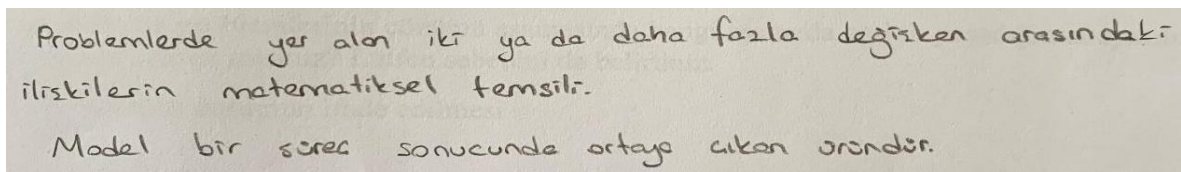 Problemlerde yer alan iki ya da daha fazla değişken arasındaki
ilişkilerin matematiksel temsili.
Model bir süreç sonucunda ortaya çıkan üründür.